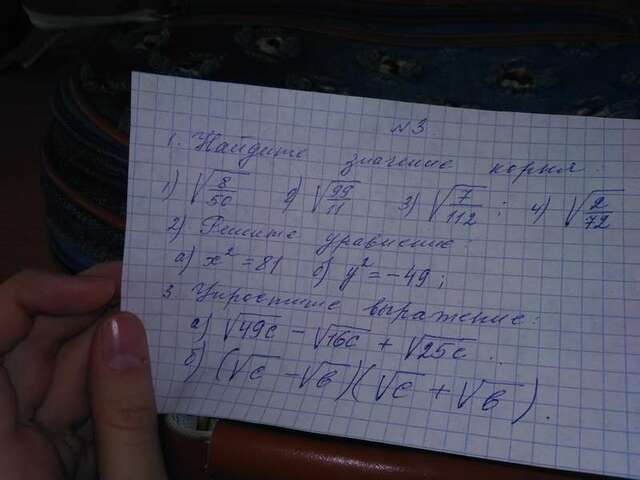 №3.
1. Найдите значение корня.
1) √8/50 2) √99/11 3) √7/112 ; 4) √2/72
2) Решите уравнение:
а) x² = 81 б) y² = -49;
3 Упростите выражение:
а) √49c - √16c + √25c.
б) (√c - √b)(√c + √b).